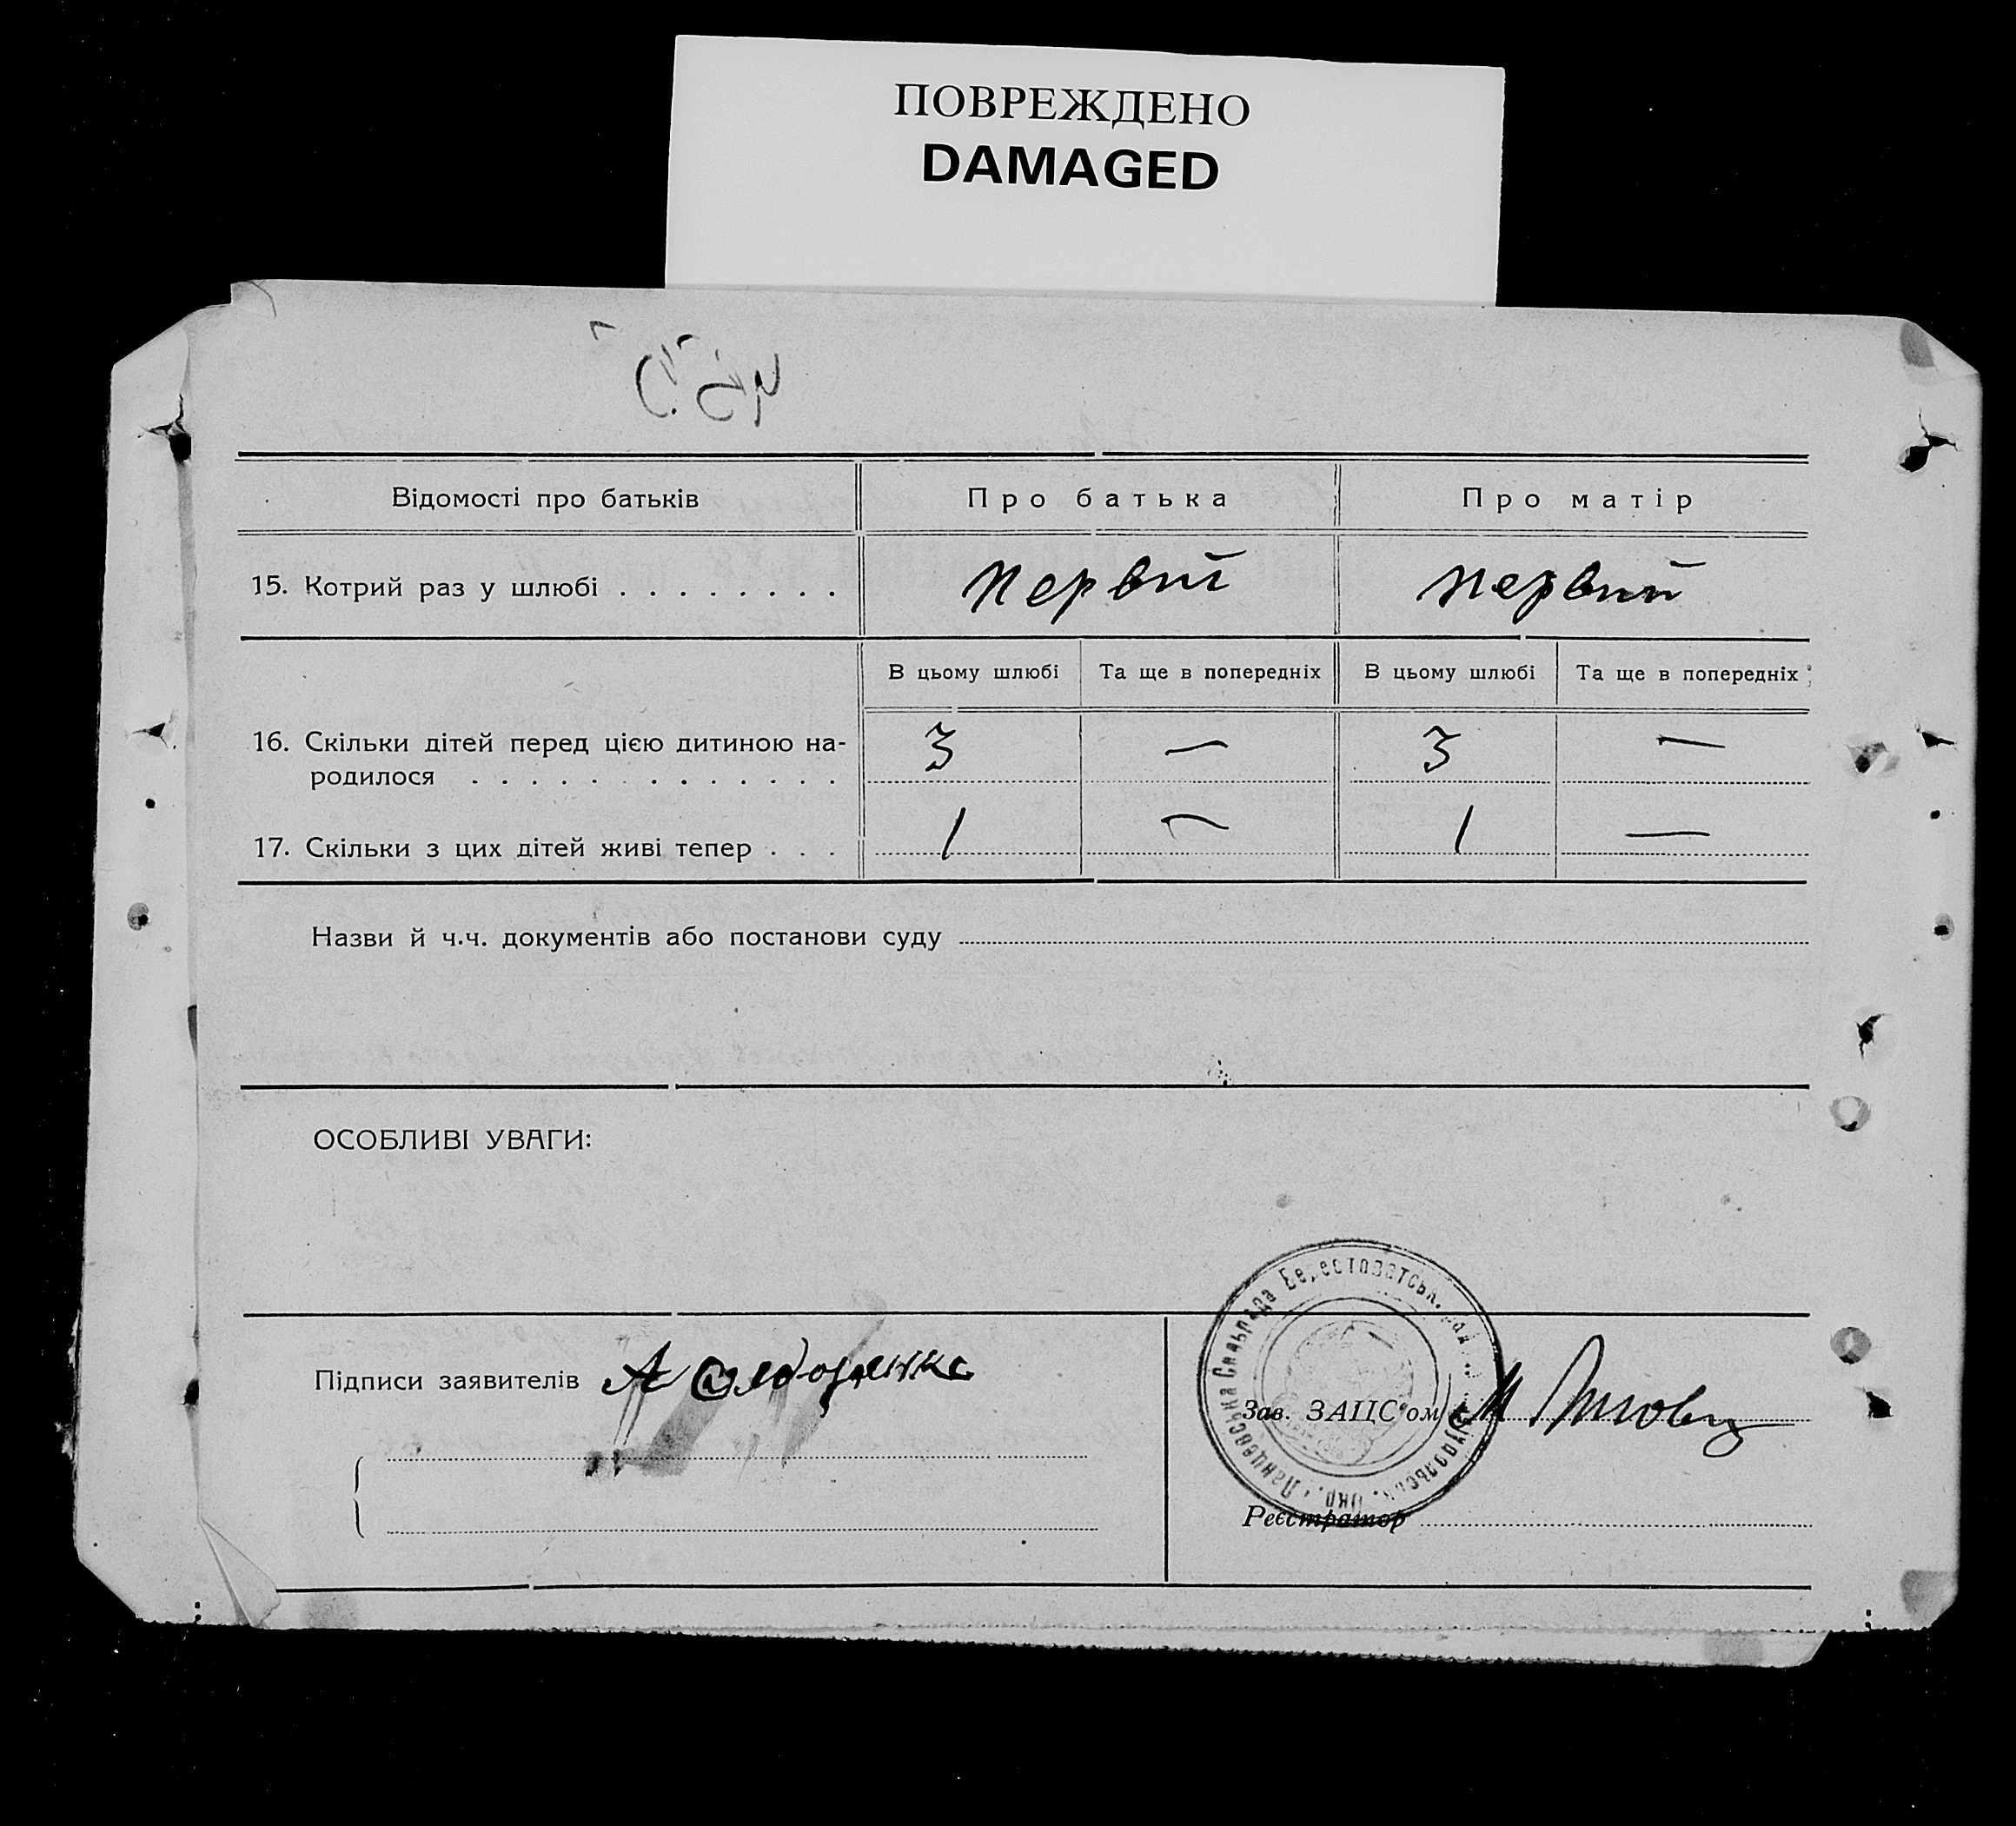 ПОВРЕЖДЕНО
DAMAGED
Відомості про батьків Про батька Про матір
15. Котрий раз у шлюбі . . . . . . . . Первий Первий
В цьому шлюбі Та ще в попередніх В цьому шлюбі Та ще в попередніх
16. Скільки дітей перед цією дитиною на-
родилося . . . . . . . . . . . . . 3 — 3 —
17. Скільки з цих дітей живі тепер . . . 1 — 1 —
Назви й ч.ч. документів або постанови суду
ОСОБЛИВІ УВАГИ:
Підписи заявителів А
Зав. ЗАГС'ом
Реєстратор
Ланцевська Сільрада Берестоватськ. Окр.